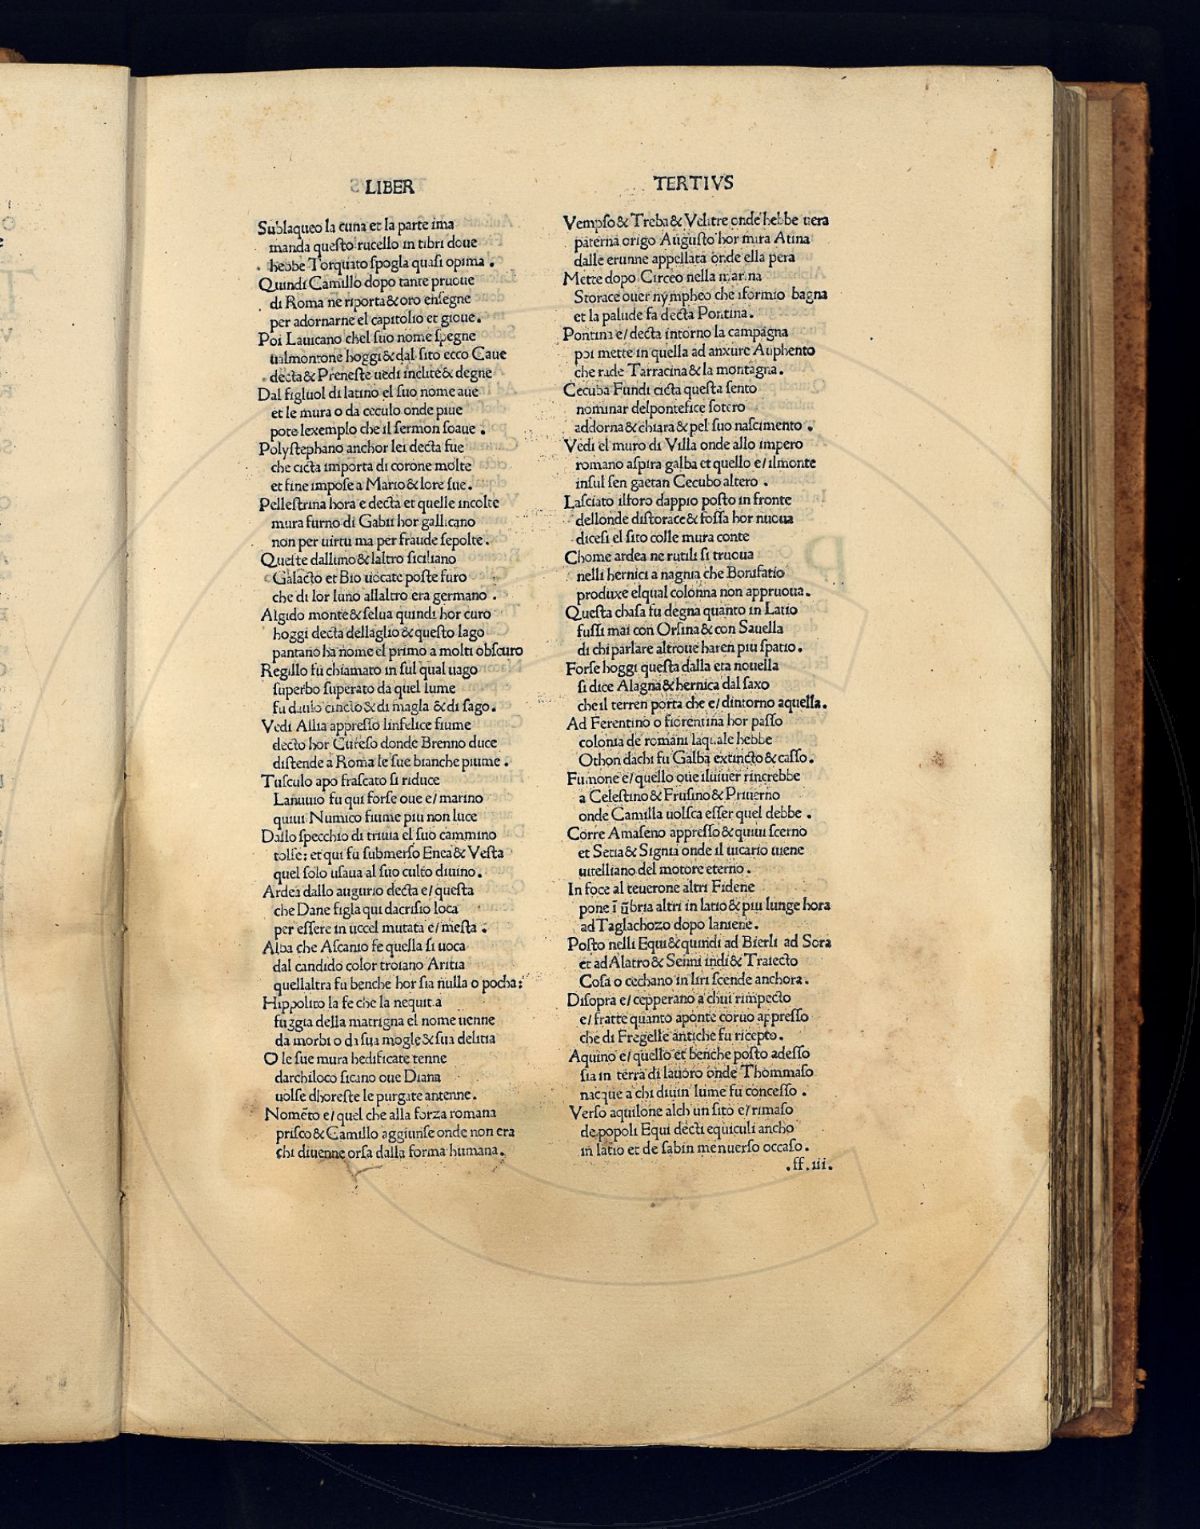 LIBER
Sublaqueo la cuna et la parte ima
manda questo rucello in tibri doue
hebbe Torquato spogla quasi opima .
Quindi Camillo dopo tante pruoue
di Roma ne riporta & oro ensegne
per adornarne el capitolio et gioue .
Poi Lauicano chel suo nome spegne
ualmontone hoggi & dal sito ecco Caue
decta & Preneste uedi inclite & degne
Dal figluol di latino el suo nome aue
et le mura o da ceculo onde piue
pote lexemplo che il sermon soaue .
Polystephano anchor lei decta fue
che cicta importa di corone molte
et fine impose a Mario & lore sue .
Pellestrina hora e decta et quelle incolte
mura furno di Gabii hor gallicano
non per uirtu ma per fraude sepolte .
Queste dalluno & laltro siciliano
Galacto et Bio uocate poste furo
che di lor luno allaltro era germano .
Algido monte & selua quindi hor curo
hoggi decta dellaglio & questo lago
pantano ha nome el primo a molti obscuro
Regillo fu chiamato in sul qual uago
superbo superato da quel lume
fu daulo cincto & di magla & di sago .
Vedi Allia appresso linfelice fiume
decto hor Cureso donde Brenno duce
distende a Roma le sue bianche piume .
Tusculo apo frascato si riduce
Lanuuio fu qui forse oue e/ marino
quiui Numico fiume piu non luce
Dallo specchio di triuia el suo cammino
tolse : et qui fu submerso Enea & Vesta
quel solo usaua al suo culto diuino .
Ardea dallo augurio decta e/ questa
che Dane figla qui dacrisio loca
per essere in uccel mutata e/ mesta .
Alba che Ascanio fe quella si uoca
dal candido color troiano Aritia
quellaltra fu benche hor sia nulla o pocha :
Hippolito la fe che la nequitia
fuggia della matrigna el nome uenne
da morbi o da sua mogle & sua delitia
O le sue mura hedificate tenne
darchiloco sicano oue Diana
uolse dhoreste le purgate antenne .
Nomēto e/ quel che alla forza romana
prisco & Camillo aggiunse onde non era
chi diuenne orsa dalla forma humana .
TERTIVS
Vempso & Treba & Velitre onde hebbe uera
paterna origo Augusto hor mira Atina
dalle erunne appellata onde ella pera
Mette dopo Circeo nella marina
Storace ouer nympheo che iformio bagna
et la palude fa decta Pontina .
Pontina e/ decta intorno la campagna
poi mette in quella ad anxure Auphento
che rade Tarracina & la montagna .
Cecuba Fundi cicta questa sento
nominar delpontefice sotero
addorna & chiara & pel suo nascimento .
Vedi el muro di Villa onde allo impero
romano aspira galba et quello e/ ilmonte
insul sen gaetan Cecubo altero .
Lasciato ilforo dappio posto in fronte
dellonde distorace & fossa hor nuoua
dicesi el sito colle mura conte
Chome ardea ne rutili si truoua
nelli hernici a nagnia che Bonifatio
produxe elqual colonna non appruoua .
Questa chasa fu degna quanto in Latio
fussi mai con Orsina & con Sauella
di chi parlare altroue haren piu spatio .
Forse hoggi questa dalla eta nouella
si dice Alagna & hernica dal saxo
che il terren porta che e/ dintorno aquella .
Ad Ferentino o fiorentina hor passo
colonia de romani laquale hebbe
Othon dachi fu Galba extincto & casso .
Fumone e/ quello oue iluiuer rincrebbe
a Celestino & Frusino & Priuerno
onde Camilla uolsca esser quel debbe .
Corre Amaseno appresso & quiui scerno
et Setia & Signia onde il uicario uiene
uitelliano del motore eterno .
In foce al teuerone altri Fidene
pone ī ūbria altri in latio & piu lunge hora
ad Taglachozo dopo laniene .
Posto nelli Equi & quindi ad Bierli ad Sora
et ad Alatro & Senni indi & Traiecto
Cosa o cechano in liri scende anchora .
Disopra e/ cepperano a chui rimpecto
e/ fratte quanto aponte coruo appresso
che di Fregelle antiche fu ricepto .
Aquino e/ quello et benche posto adesso
sia in terra di lauoro onde Thommaso
nacque a chi diuin lume fu concesso .
Verso aquilone alchun sito e/ rimaso
de popoli Equi decti equiculi ancho
in latio et de sabin menuerso occaso .
.ff.iii.